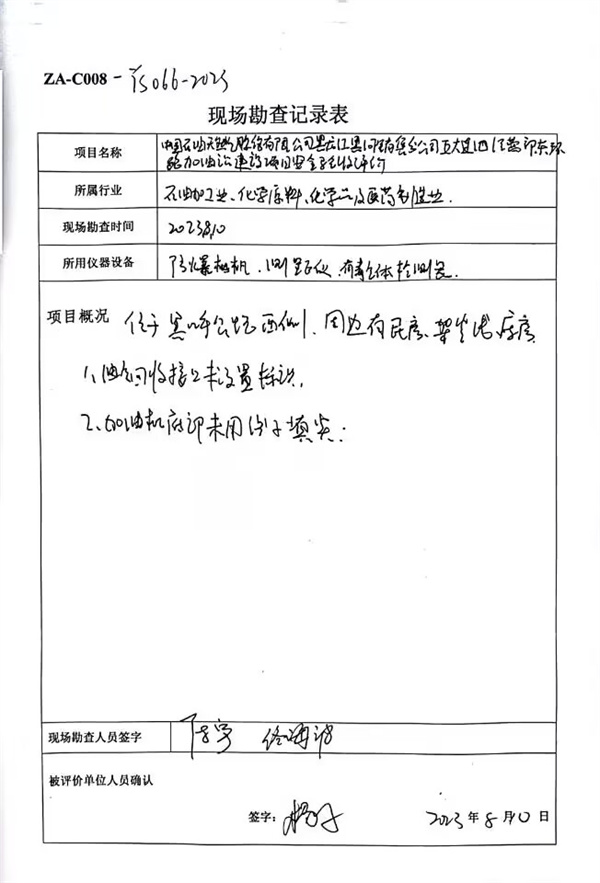 ZA-C008-TS066-2023
现场勘查记录表
项目名称 中国石油天然气股份有限公司黑龙江黑河销售分公司五大连池
加油站建设项目安全验收评价
所属行业 石油加工业、化学原料、化学品及医药制造业.
现场勘查时间 2023.8.10
所用仪器设备 防爆相机、测距仪、有毒气体检测仪.
项目概况 位于黑 公路西侧、周边有民房、架空线、库房
1、油气回收接口未设置标识.
2、加油机底部未用沙子填实.
现场勘查人员签字
被评价单位人员确认
签字: 2023年8月10日